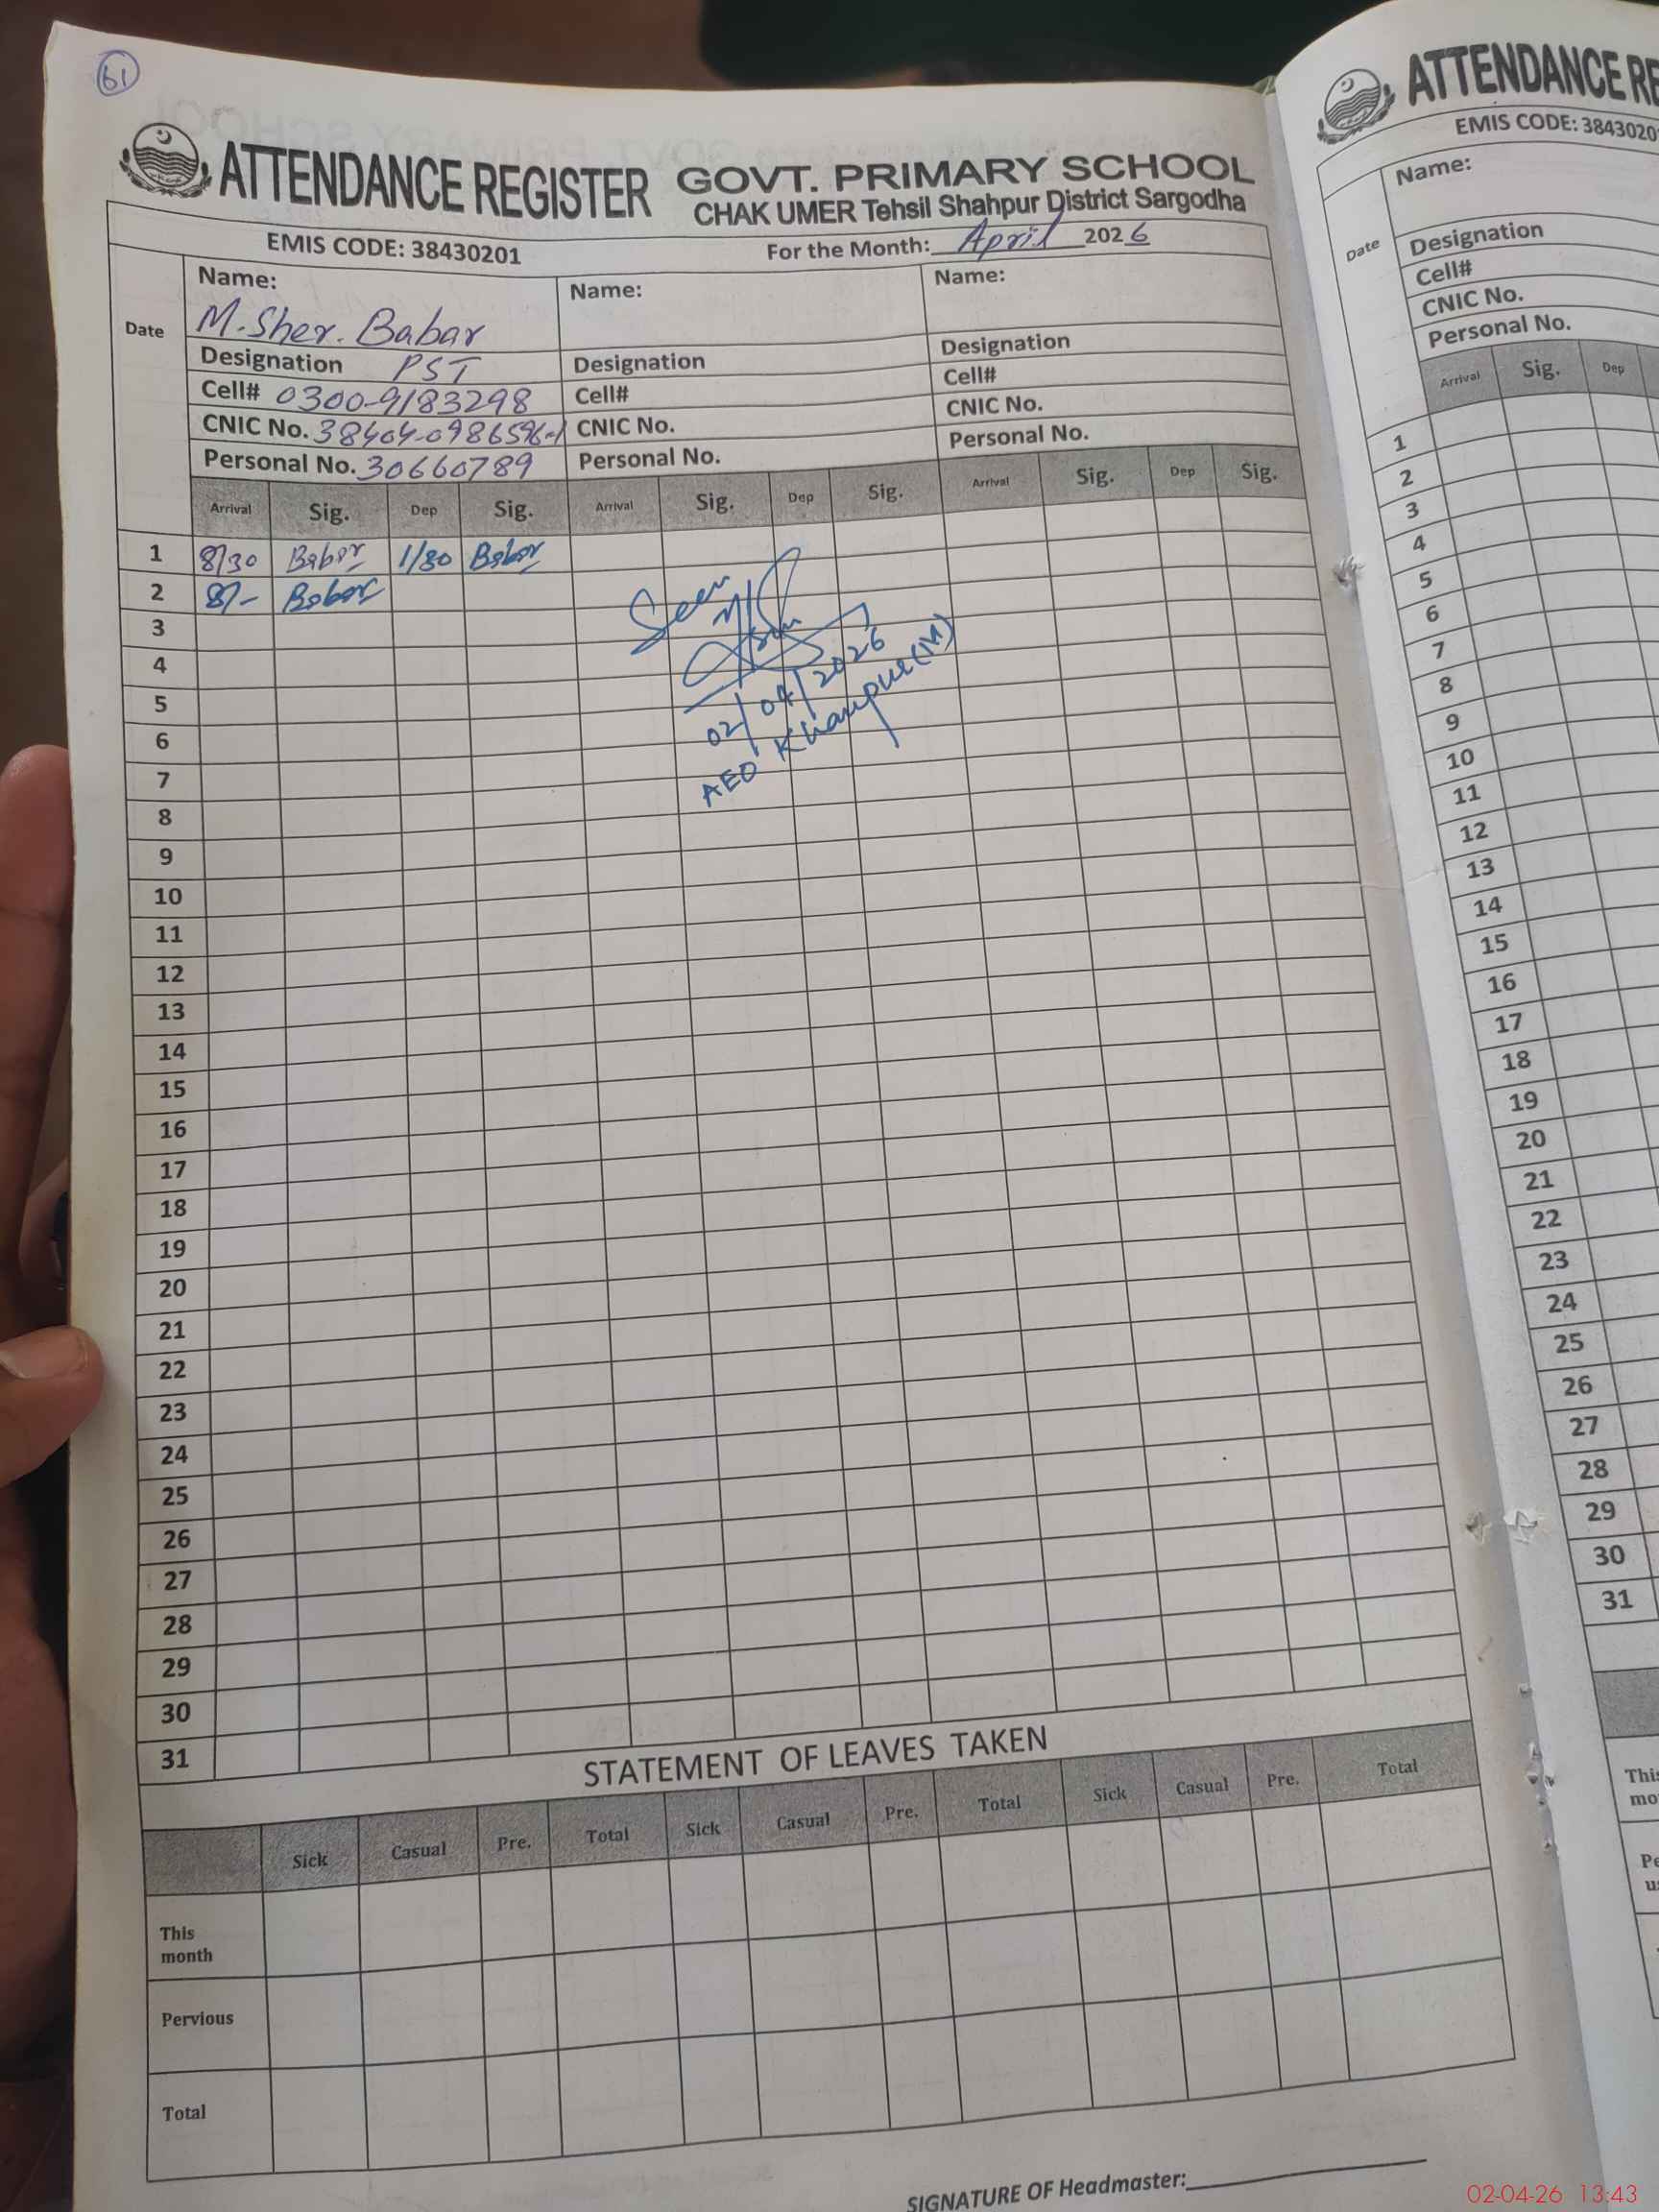 61
ATTENDANCE REGISTER GOVT. PRIMARY SCHOOL
CHAK UMER Tehsil Shahpur District Sargodha
EMIS CODE: 38430201 For the Month: April 2026
Date
Name: M. Sher. Babar
Designation PST
Cell# 0300-9183298
CNIC No. 38404-0986596-1
Personal No. 30660789
Name:
Designation
Cell#
CNIC No.
Personal No.
Name:
Designation
Cell#
CNIC No.
Personal No.
Arrival Sig. Dep Sig. Arrival Sig. Dep Sig. Arrival Sig. Dep Sig.
1 8/30 Babar 1/30 Babar
2 8/- Babar
3
4
5
6
7
8
9
10
11
12
13
14
15
16
17
18
19
20
21
22
23
24
25
26
27
28
29
30
31
Seen
02/04/2026
AEO Khanpur(M)
STATEMENT OF LEAVES TAKEN
Sick Casual Pre. Total Sick Casual Pre. Total Sick Casual Pre. Total
This month
Pervious
Total
SIGNATURE OF Headmaster:
ATTENDANCE RE
EMIS CODE: 3843020
Date
Name:
Designation
Cell#
CNIC No.
Personal No.
Arrival Sig. Dep
1
2
3
4
5
6
7
8
9
10
11
12
13
14
15
16
17
18
19
20
21
22
23
24
25
26
27
28
29
30
31
02-04-26 13:43